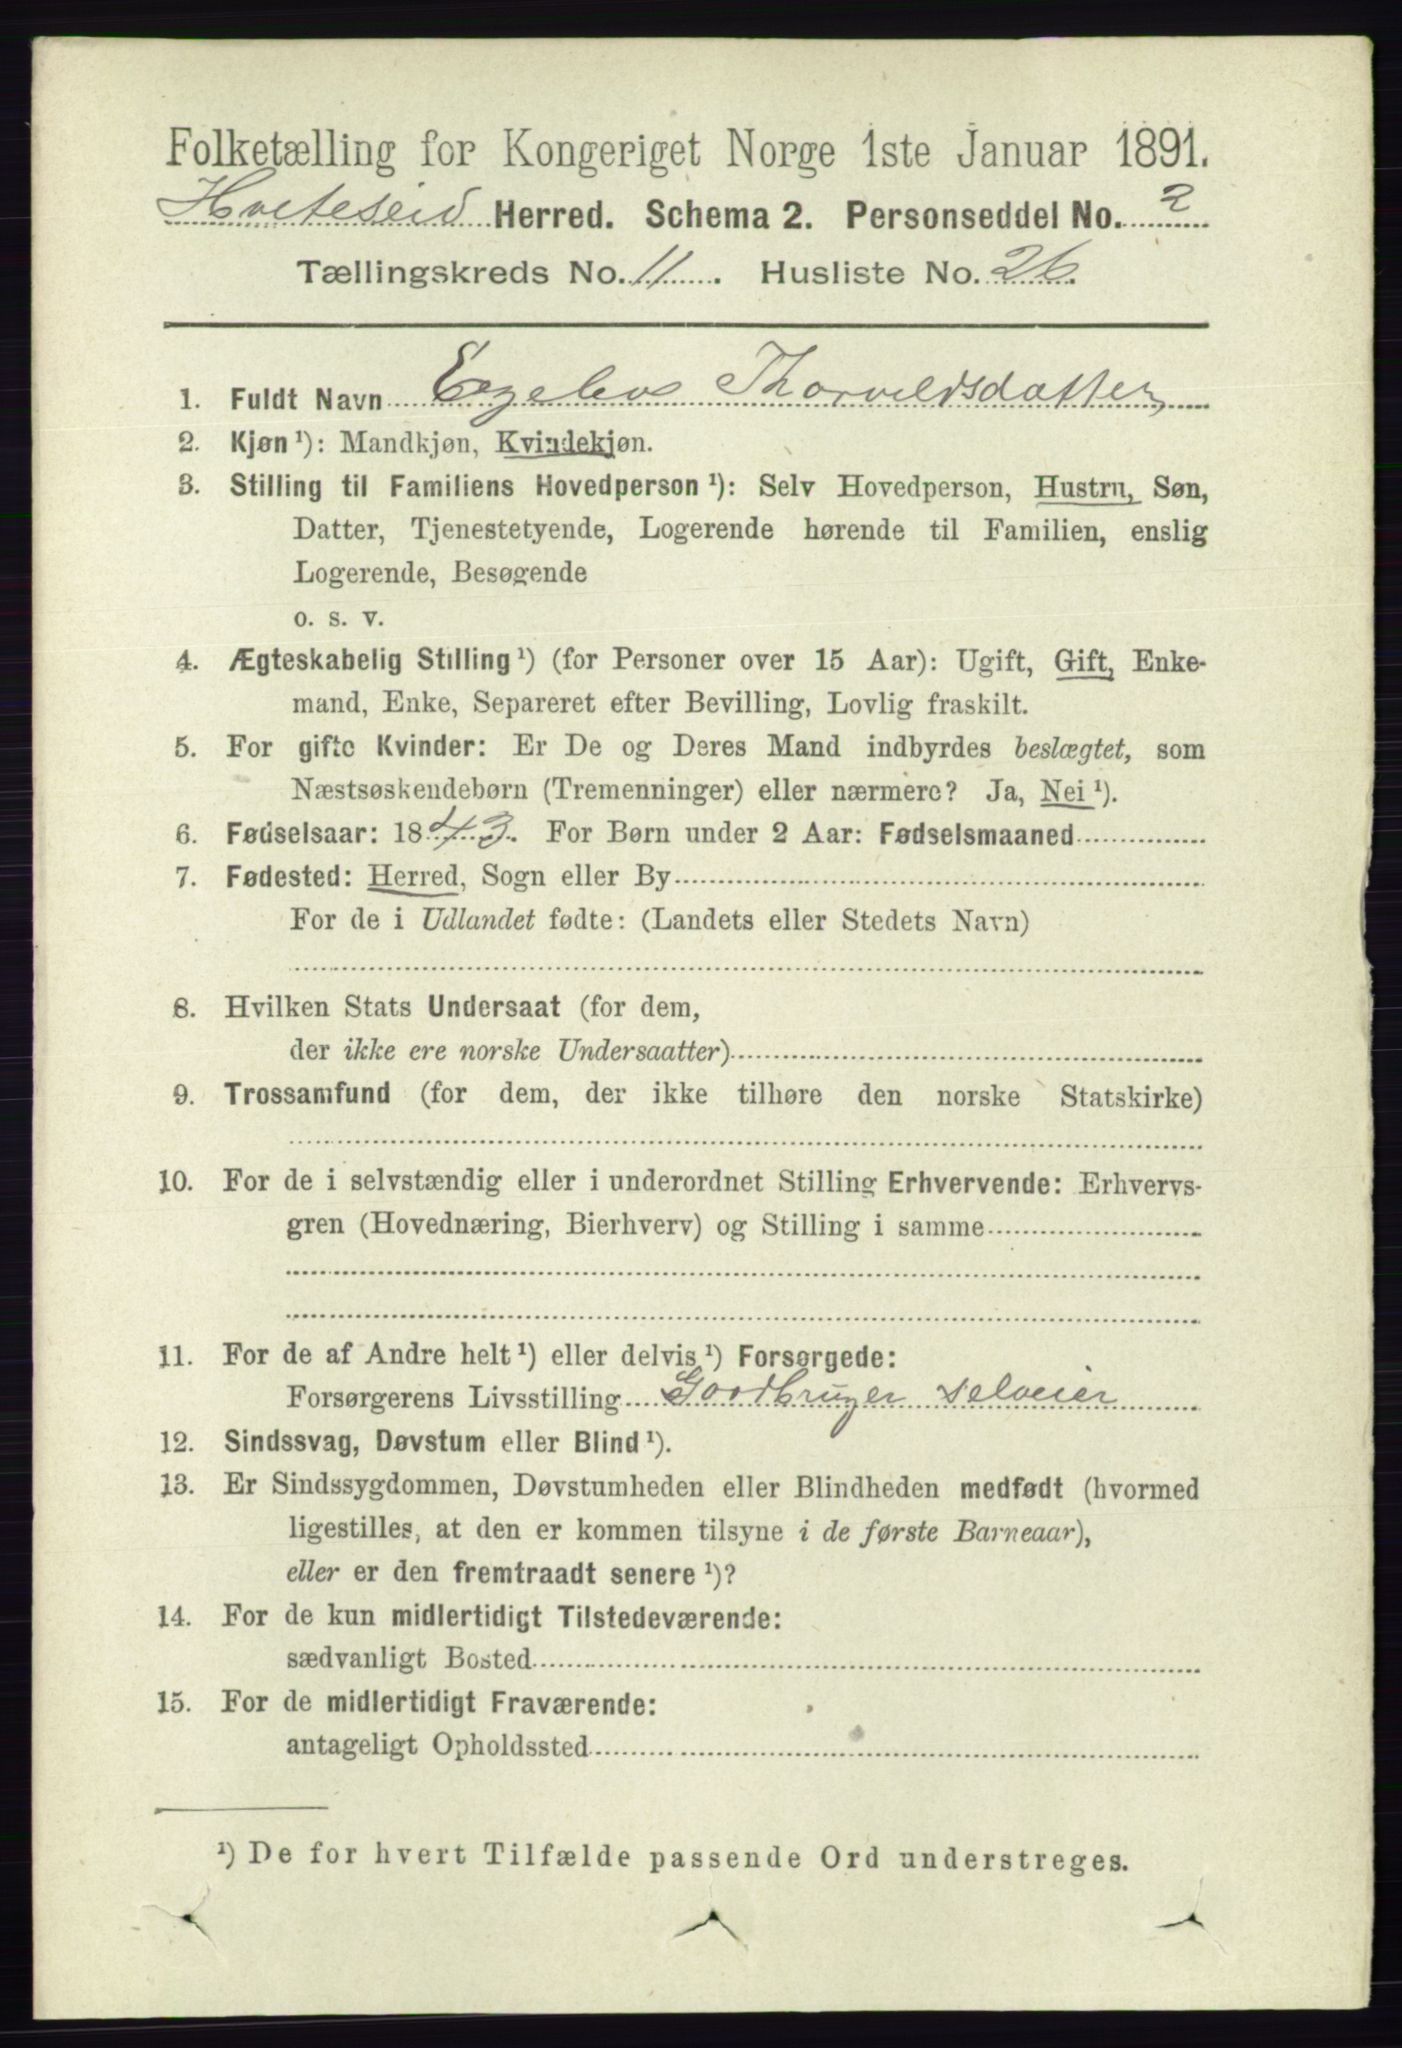 Folketælling for Kongeriget Norge 1ste Januar 1891.
Hviteseid Herred. Schema 2. Personseddel No. 2
Tællingskreds No. 11. Husliste No. 26.
1. Fuldt Navn Thorvildsdatter
2. Kjøn ¹): Mandkjøn, Kvindekjøn.
3. Stilling til Familiens Hovedperson ¹): Selv Hovedperson, Hustru, Søn,
Datter, Tjenestetyende, Logerende hørende til Familien, enslig
Logerende, Besøgende
o. s. v.
4. Ægteskabelig Stilling ¹) (for Personer over 15 Aar): Ugift, Gift, Enke-
mand, Enke, Separeret efter Bevilling, Lovlig fraskilt.
5. For gifte Kvinder: Er De og Deres Mand indbyrdes beslægtet, som
Næstsøskendebørn (Tremenninger) eller nærmere? Ja, Nei ¹).
6. Fødselsaar: 1843. For Børn under 2 Aar: Fødselsmaaned
7. Fødested: Herred, Sogn eller By
For de i Udlandet fødte: (Landets eller Stedets Navn)
8. Hvilken Stats Undersaat (for dem,
der ikke ere norske Undersaatter)
9. Trossamfund (for dem, der ikke tilhøre den norske Statskirke)
10. For de i selvstændig eller i underordnet Stilling Erhvervende: Erhvervs-
gren (Hovednæring, Bierhverv) og Stilling i samme
11. For de af Andre helt ¹) eller delvis ¹) Forsørgede:
Forsørgerens Livsstilling Gaardbruger selveier
12. Sindssvag, Døvstum eller Blind ¹).
13. Er Sindssygdommen, Døvstumheden eller Blindheden medfødt (hvormed
ligestilles, at den er kommen tilsyne i de første Barneaar),
eller er den fremtraadt senere ¹)?
14. For de kun midlertidigt Tilstedeværende:
sædvanligt Bosted
15. For de midlertidigt Fraværende:
antageligt Opholdssted
¹) De for hvert Tilfælde passende Ord understreges.